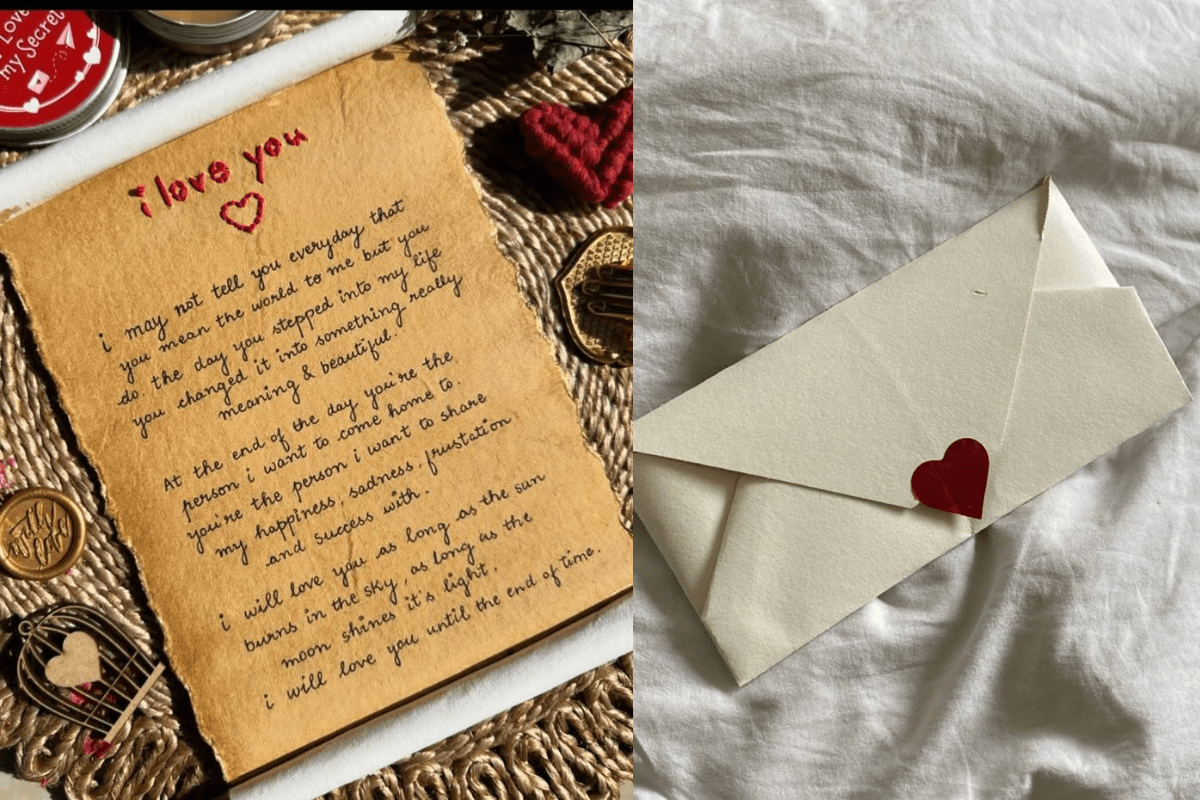 Love
my Secret
i love you
i may not tell you everyday that
you mean the world to me but you
do. the day you stepped into my life
you changed it into something really
meaning & beautiful.
At the end of the day you're the
person i want to come home to.
you're the person i want to share
my happiness, sadness, frustation
and success with.
i will love you as long as the sun
burns in the sky, as long as the
moon shines it's light.
i will love you until the end of time.
with
love